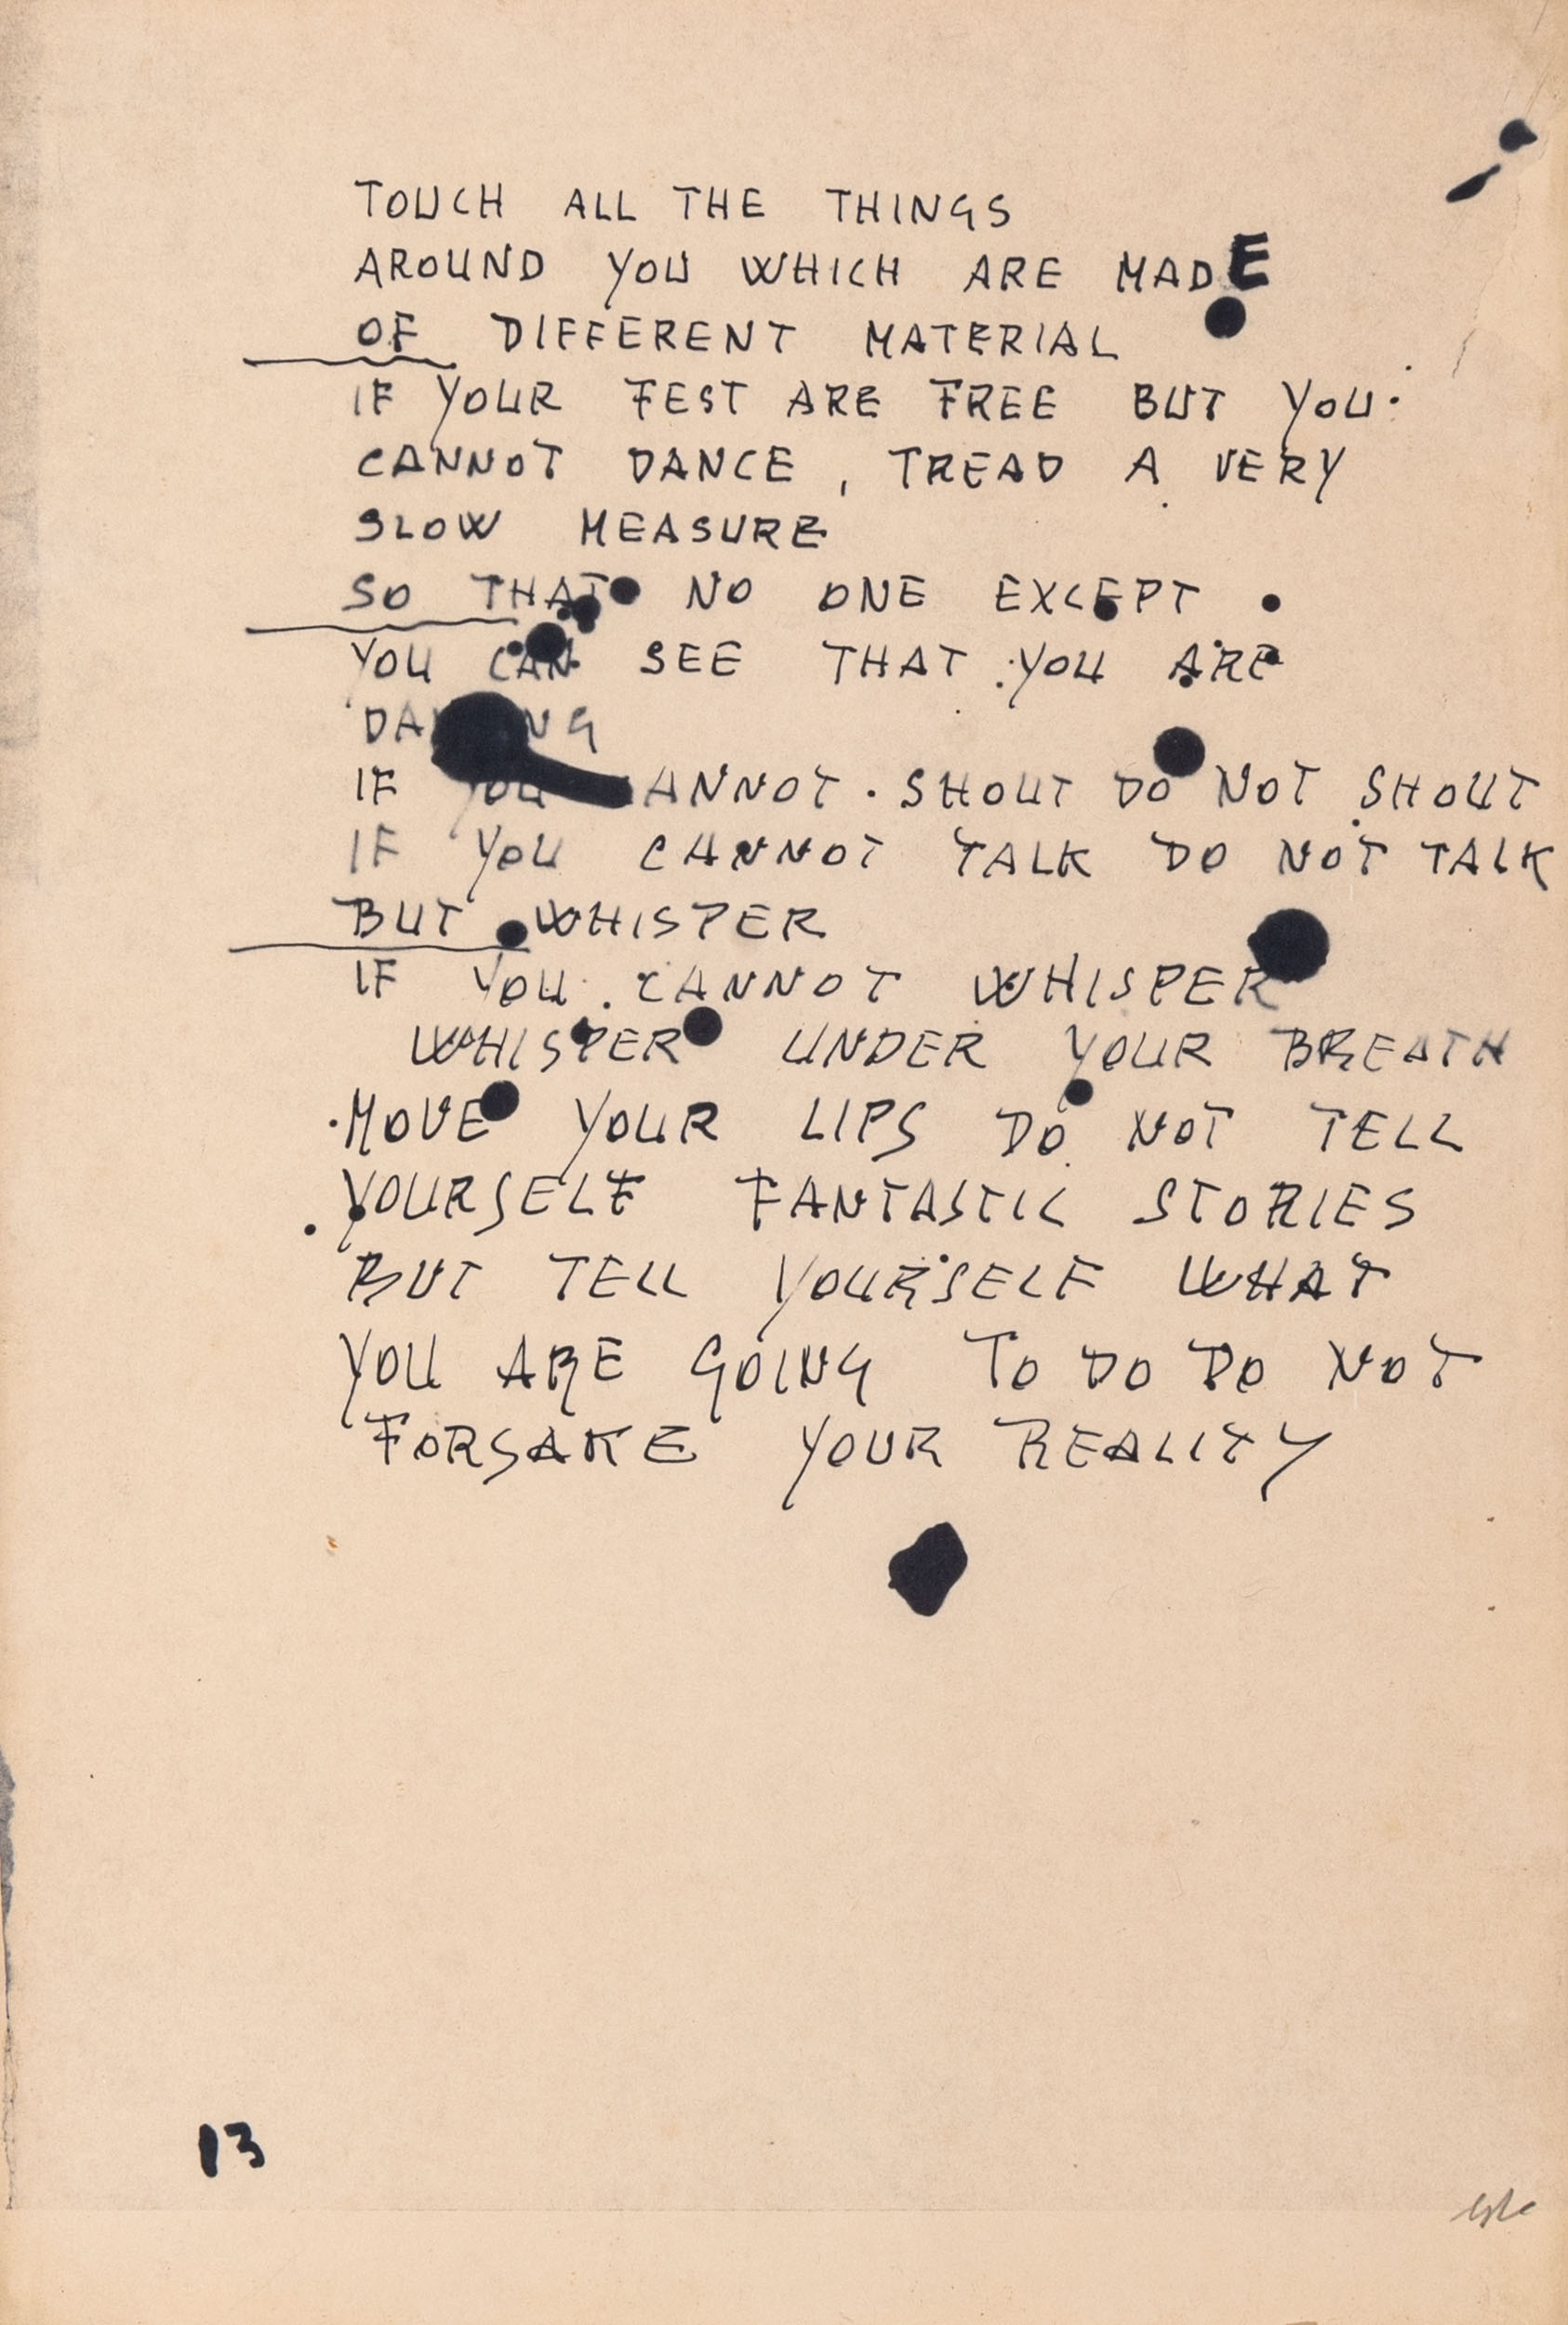 TOUCH ALL THE THINGS
AROUND YOU WHICH ARE MADE
OF DIFFERENT MATERIAL
IF YOUR FEST ARE FREE BUT YOU
CANNOT DANCE, TREAD A VERY
SLOW MEASURE
SO THAT NO ONE EXCEPT
YOU CAN SEE THAT YOU ARE
IF YOU CANNOT SHOUT DO NOT SHOUT
IF YOU CANNOT TALK DO NOT TALK
BUT WHISPER
IF YOU CANNOT WHISPER
WHISPER UNDER YOUR BREATH
MOVE YOUR LIPS DO NOT TELL
YOURSELF FANTASTIC STORIES
BUT TELL YOURSELF WHAT
YOU ARE GOING TO DO DO NOT
FORSAKE YOUR REALITY
13